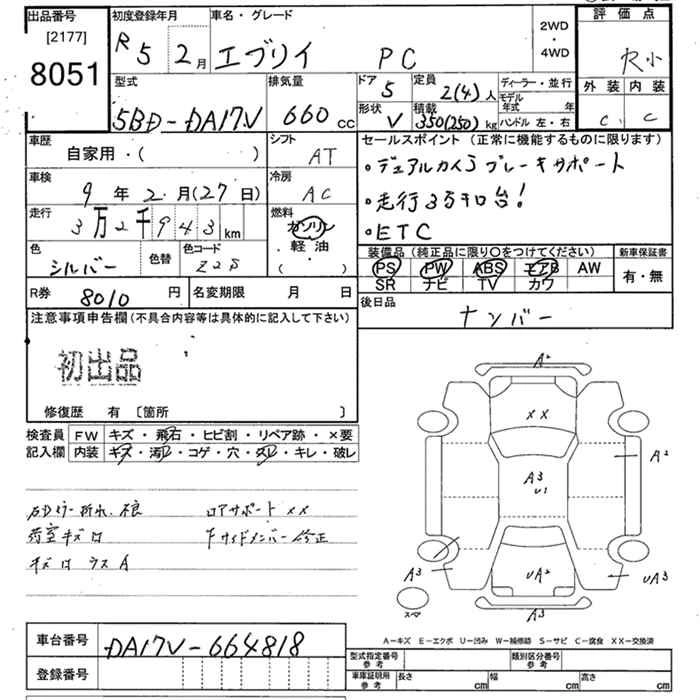 出品番号 初度登録年月 車名・グレード 2WD・4WD 評価点
[2177]
8051 R5 2月 エブリイ PC R小
型式 排気量 ドア 5 定員 2(4)人 ディーラー・並行 外装 内装
5BD-DA17V 660cc 形状 V 積載 350(250)kg モデル年式 年 C C
ハンドル 左・右
車歴 シフト セールスポイント(正常に機能するものに限ります)
自家用・( ) AT ・デュアルカメラブレーキサポート
車検 冷房
9年2月(27日) AC ・走行3万キロ台!
走行 燃料
3万2千943km ガソリン ・ETC
軽油・
( )
色 色替 色コード 装備品(純正品に限り○をつけてください) 新車保証書
シルバー Z2S PS PW ABS エアB AW 有・無
SR ナビ TV カワ
R券 8010円 名変期限 月 日 後日品
ナンバー
注意事項申告欄(不具合内容等は具体的に記入して下さい)
初出品
修復歴 有 〔箇所 〕
検査員 FW キズ・飛石・ヒビ割・リペア跡・×要
記入欄 内装 キズ・汚れ・コゲ・穴・スレ・キレ・破レ
折れ、 ロアサポート XX
荷室キズ口 Fサイドメンバー修正
キズ口 ウスA
A2
XX
A2
A3
U1
A3
UA2
UA3
スペア
A3
A-キズ E-エクボ U-凹み W-補修跡 S-サビ C-腐食 XX-交換済
車台番号 DA17V-664818
型式指定番号 参考 類別区分番号 参考
登録番号 車庫証明用 参考 長さ cm 幅 cm 高さ cm